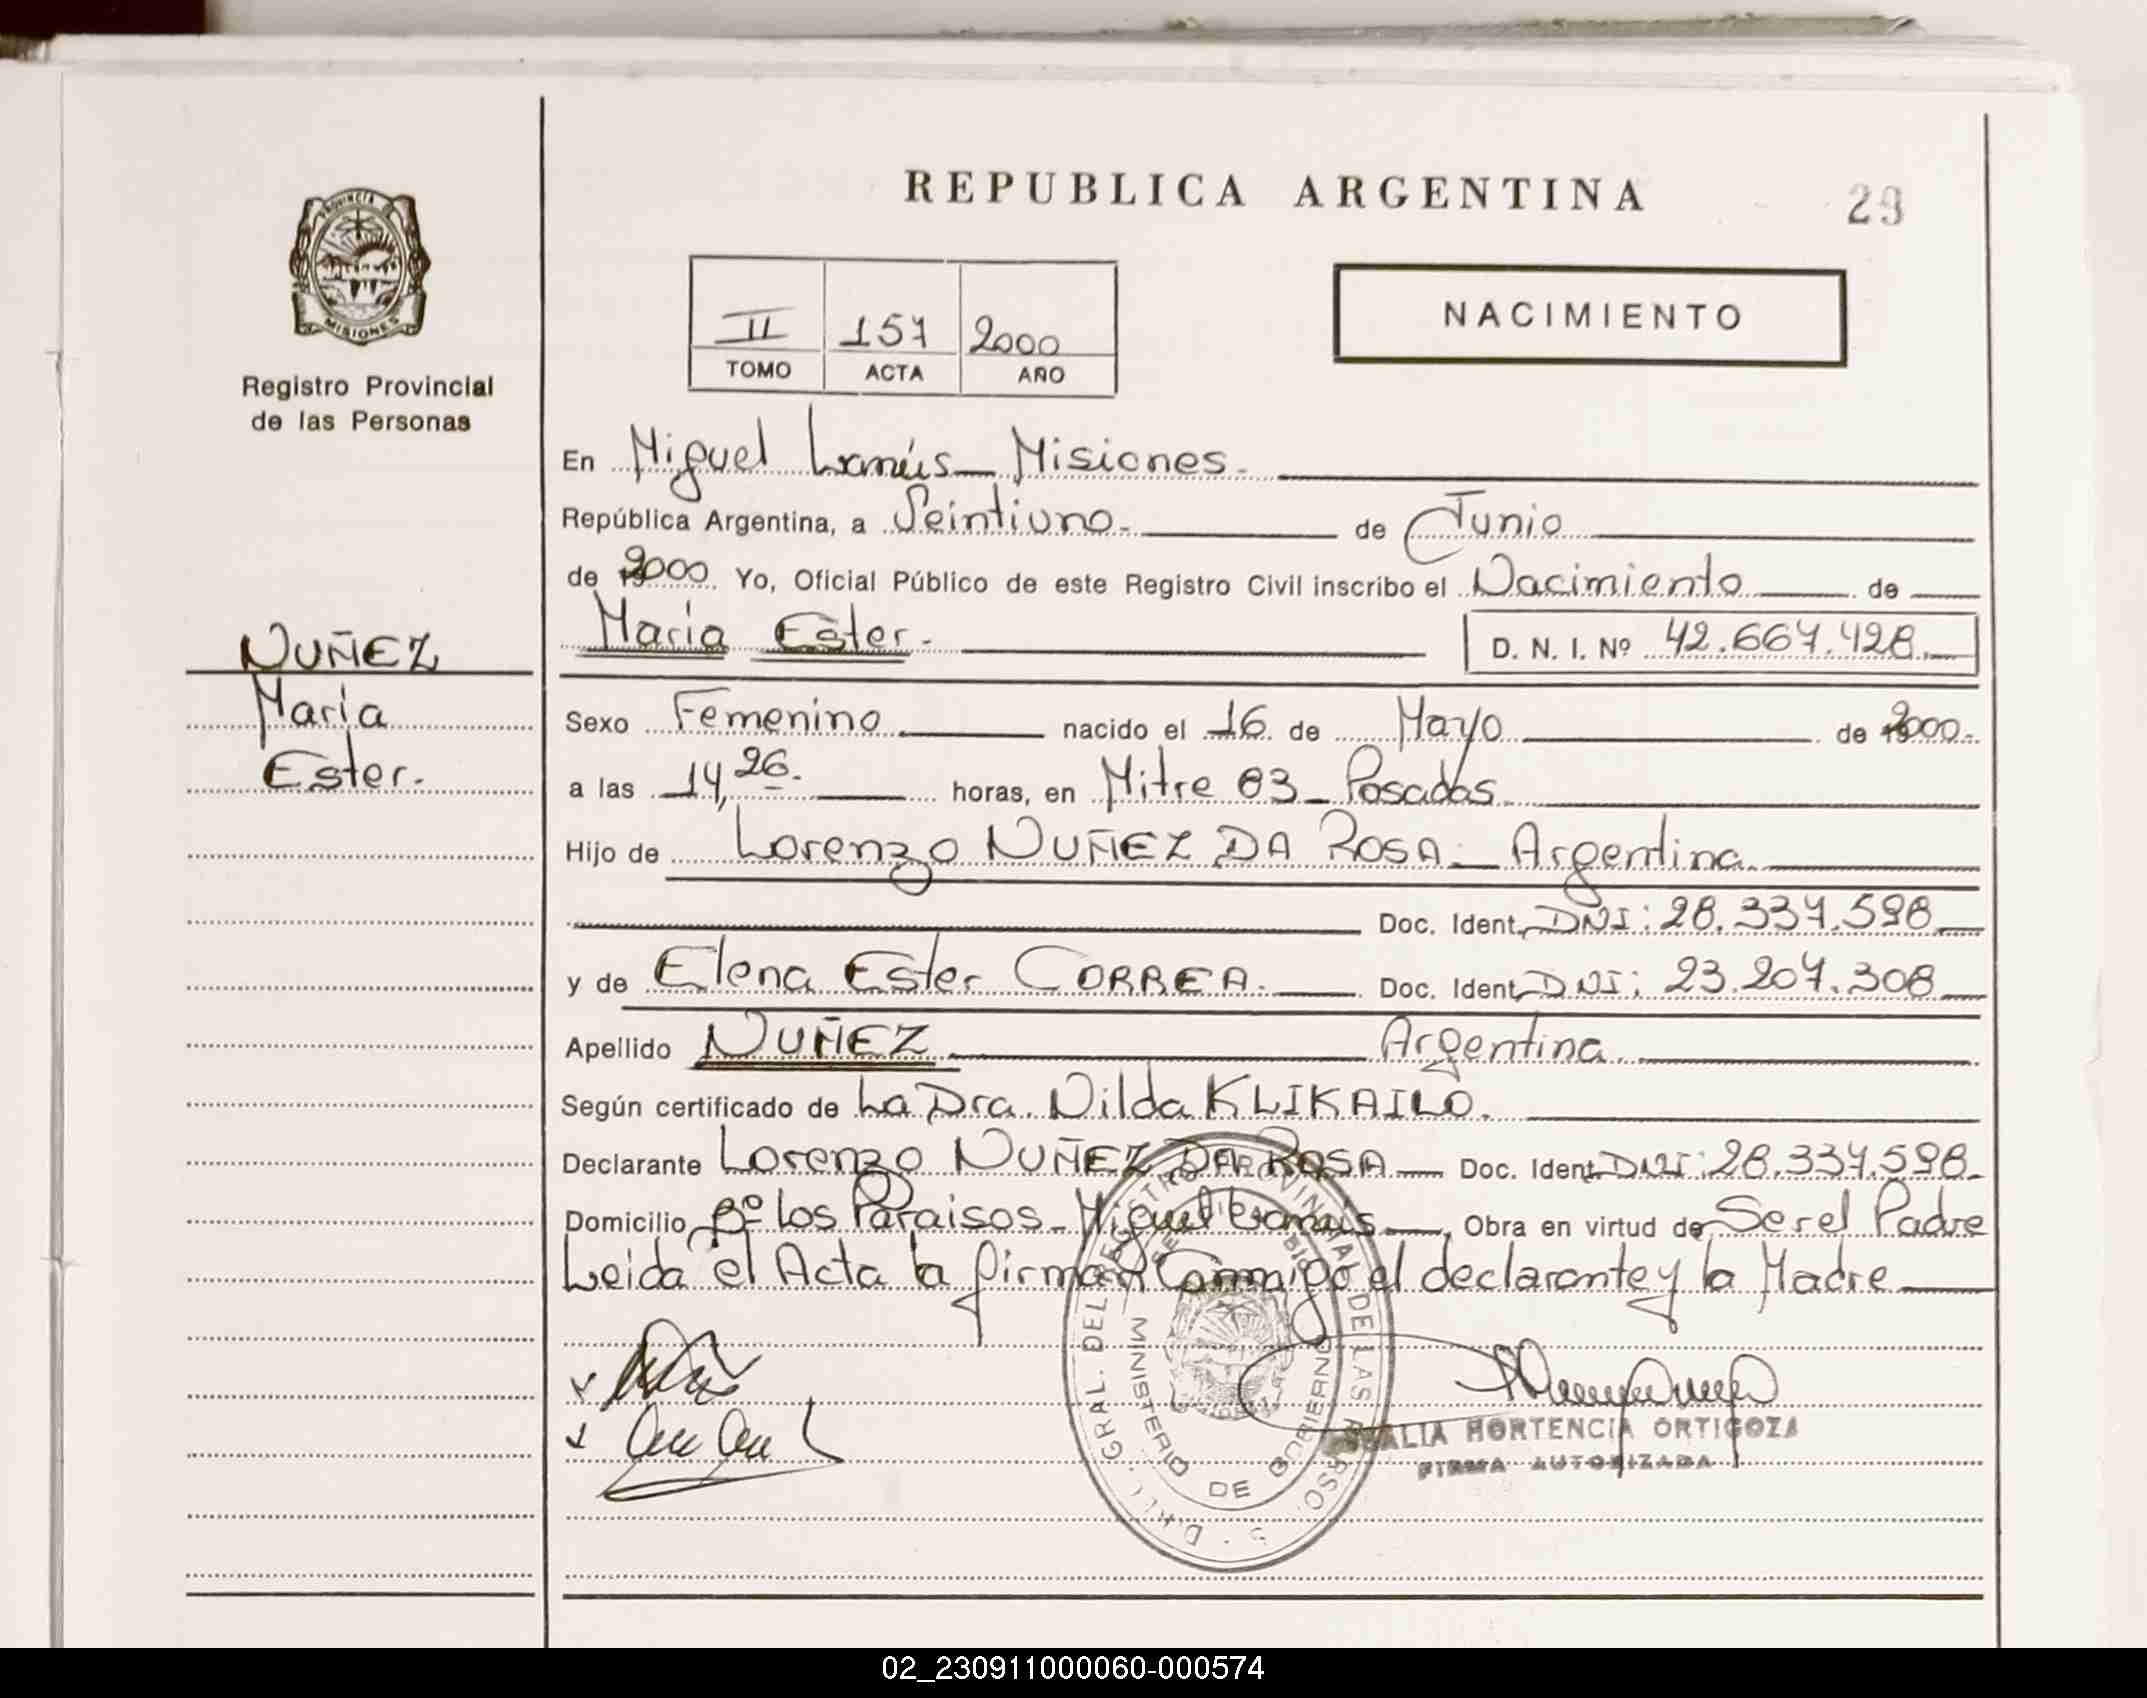 REPUBLICA ARGENTINA
29
PROVINCIA DE
MISIONES
Registro Provincial
de las Personas
II 157 2000
TOMO ACTA AÑO
NACIMIENTO
En Miguel Lanús - Misiones.
República Argentina, a Veintiuno. de Junio
de 2000 Yo, Oficial Público de este Registro Civil inscribo el Nacimiento de
María Ester. D. N. I. Nº 42.667.428.
NUÑEZ
María
Ester.
Sexo Femenino nacido el 16 de Mayo de 2000.
a las 14,26. horas, en Mitre 83 - Posadas
Hijo de Lorenzo NUÑEZ DA ROSA - Argentina.
Doc. Ident. DNI: 28.337.598
y de Elena Ester CORREA. Doc. Ident. DNI: 23.207.308
Apellido NUÑEZ Argentina
Según certificado de La Dra. Nilda KLIKAILO.
Declarante Lorenzo NUÑEZ DA ROSA Doc. Ident. DNI: 28.337.598
Domicilio Bº Los Paraisos - Miguel Lanús, Obra en virtud de Ser el Padre
Leida el Acta la firman Conmigo el declarante y la Madre
DE LAS
MINISTERIO DE GOBIERNO
HORTENCIA ORTIGOZA
FIRMA AUTORIZADA
02_230911000060-000574